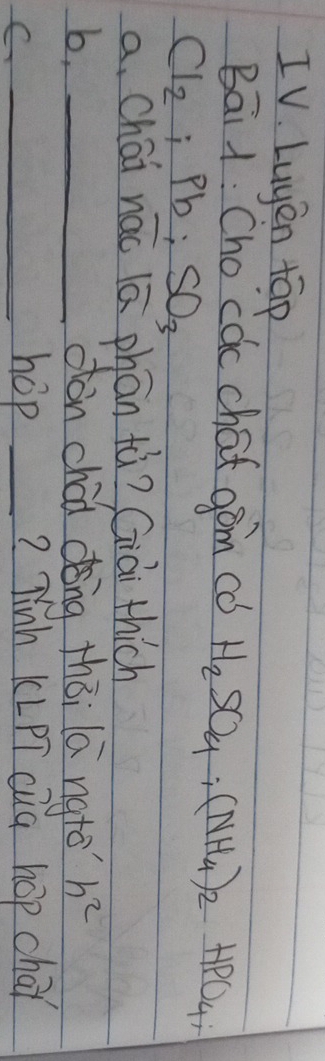 IV. Luyện tập
Bài 1: Cho các chất gồm có H₂SO₄; (NH₄)₂ HPO₄;
Cl₂; Pb; SO₃
a, Chất nào là phân tử? Giải thích
b, ______ đơn chất đồng thời là ngtố h²
c, ______ hợp ___? Tính KLPT của hợp chất